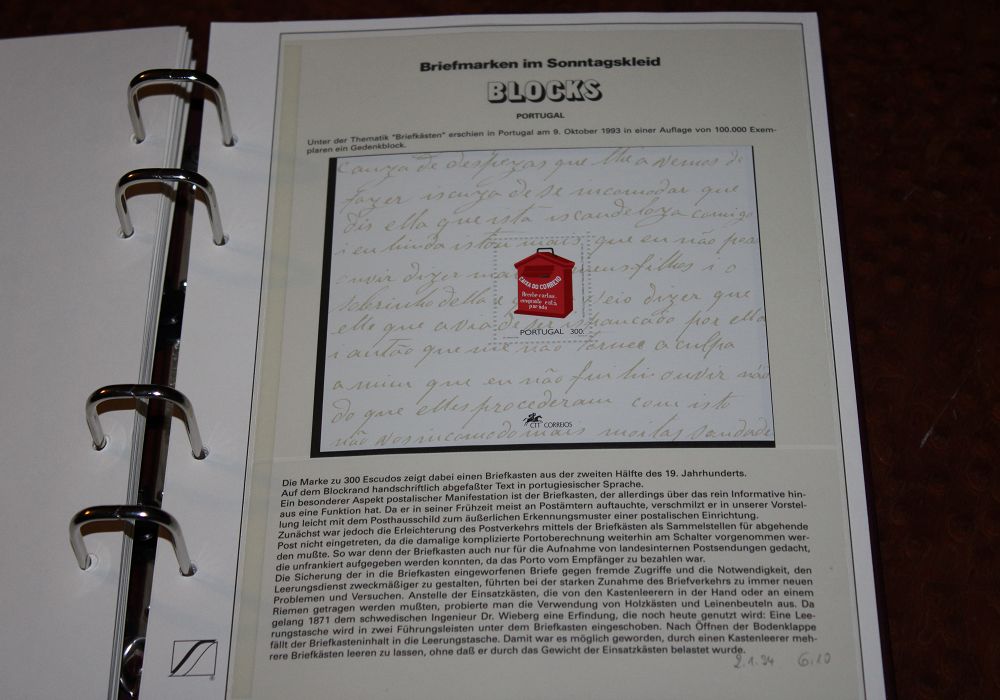 Briefmarken im Sonntagskleid
BLOCKS
PORTUGAL
Unter der Thematik "Briefkästen" erschien in Portugal am 9. Oktober 1993 in einer Auflage von 100.000 Exem-
plaren ein Gedenkblock.
cauza de despezas que lhe a vemos di
fazer iscuza de se incomodar que
dis ella que istá iscandeloza comigo
i eu hinda istou mais que eu não
ouvir dizer meus filhos i o
sobrinho della e veio dizer que
elle que avia de ser ispancado por ella
i antão que me não tornee a culpa
a mim que eu não fui hi ouvir não
do que elles procederam com isto
não vos incomodo mais moitas saudade
CAIXA DO CORREIO
Recebe cartas
emquanto está
parado
PORTUGAL 300.
CTT CORREIOS
Die Marke zu 300 Escudos zeigt dabei einen Briefkasten aus der zweiten Hälfte des 19. Jahrhunderts.
Auf dem Blockrand handschriftlich abgefaßter Text in portugiesischer Sprache.
Ein besonderer Aspekt postalischer Manifestation ist der Briefkasten, der allerdings über das rein Informative hin-
aus eine Funktion hat. Da er in seiner Frühzeit meist an Postämtern auftauchte, verschmilzt er in unserer Vorstel-
lung leicht mit dem Posthausschild zum äußerlichen Erkennungsmuster einer postalischen Einrichtung.
Zunächst war jedoch die Erleichterung des Postverkehrs mittels der Briefkästen als Sammelstellen für abgehende
Post nicht eingetreten, da die damalige komplizierte Portoberechnung weiterhin am Schalter vorgenommen wer-
den mußte. So war denn der Briefkasten auch nur für die Aufnahme von landesinternen Postsendungen gedacht,
die unfrankiert aufgegeben werden konnten, da das Porto vom Empfänger zu bezahlen war.
Die Sicherung der in die Briefkasten eingeworfenen Briefe gegen fremde Zugriffe und die Notwendigkeit, den
Leerungsdienst zweckmäßiger zu gestalten, führten bei der starken Zunahme des Briefverkehrs zu immer neuen
Problemen und Versuchen. Anstelle der Einsatzkästen, die von den Kastenleerern in der Hand oder an einem
Riemen getragen werden mußten, probierte man die Verwendung von Holzkästen und Leinenbeuteln aus. Da
gelang 1871 dem schwedischen Ingenieur Dr. Wieberg eine Erfindung, die noch heute genutzt wird: Eine Lee-
rungstasche wird in zwei Führungsleisten unter dem Briefkasten eingeschoben. Nach Öffnen der Bodenklappe
fällt der Briefkasteninhalt in die Leerungstasche. Damit war es möglich geworden, durch einen Kastenleerer meh-
rere Briefkästen leeren zu lassen, ohne daß er durch das Gewicht der Einsatzkästen belastet wurde.
2.1.94 6,10